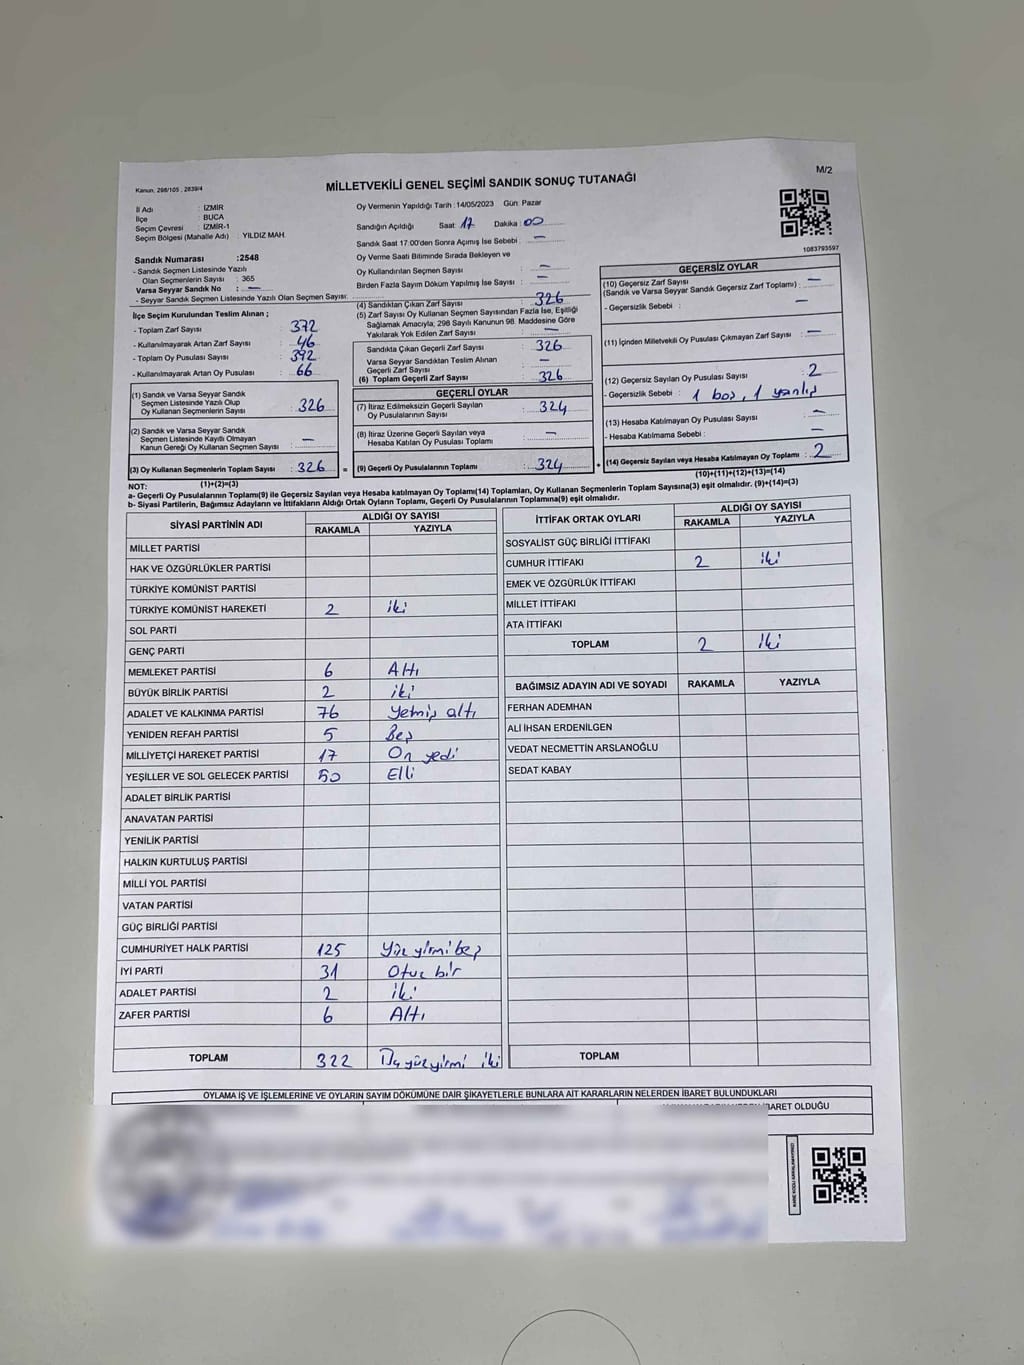 Kanun, 298/105 , 2839/4
MİLLETVEKİLİ GENEL SEÇİMİ SANDIK SONUÇ TUTANAĞI
M/2
İl Adı : İZMİR
İlçe : BUCA
Seçim Çevresi : İZMİR-1
Seçim Bölgesi (Mahalle Adı) : YILDIZ MAH.
Sandık Numarası :2548
- Sandık Seçmen Listesinde Yazılı
Olan Seçmenlerin Sayısı : 365
Varsa Seyyar Sandık No : —
- Seyyar Sandık Seçmen Listesinde Yazılı Olan Seçmen Sayısı:
İlçe Seçim Kurulundan Teslim Alınan ;
- Toplam Zarf Sayısı 372
- Kullanılmayarak Artan Zarf Sayısı : 46
- Toplam Oy Pusulası Sayısı : 392
- Kullanılmayarak Artan Oy Pusulası : 66
(1) Sandık ve Varsa Seyyar Sandık
Seçmen Listesinde Yazılı Olup
Oy Kullanan Seçmenlerin Sayısı : 326
(2) Sandık ve Varsa Seyyar Sandık
Seçmen Listesinde Kayıtlı Olmayan
Kanun Gereği Oy Kullanan Seçmen Sayısı : —
(3) Oy Kullanan Seçmenlerin Toplam Sayısı : 326
(1)+(2)=(3)
Oy Vermenin Yapıldığı Tarih : 14/05/2023 Gün: Pazar
Sandığın Açıldığı Saat: 17 Dakika : 00
Sandık Saat 17:00'den Sonra Açımış İse Sebebi : —
Oy Verme Saati Bitiminde Sırada Bekleyen ve
Oy Kullandırılan Seçmen Sayısı : —
Birden Fazla Sayım Döküm Yapılmış İse Sayısı : —
(4) Sandıktan Çıkan Zarf Sayısı : 326
(5) Zarf Sayısı Oy Kullanan Seçmen Sayısından Fazla İse, Eşitliği
Sağlamak Amacıyla; 298 Sayılı Kanunun 98. Maddesine Göre
Yakılarak Yok Edilen Zarf Sayısı : —
Sandıkta Çıkan Geçerli Zarf Sayısı : 326
Varsa Seyyar Sandıktan Teslim Alınan
Geçerli Zarf Sayısı : —
(6) Toplam Geçerli Zarf Sayısı : 326
GEÇERLİ OYLAR
(7) İtiraz Edilmeksizin Geçerli Sayılan
Oy Pusulalarının Sayısı : 324
(8) İtiraz Üzerine Geçerli Sayılan veya
Hesaba Katılan Oy Pusulası Toplamı : —
= (9) Geçerli Oy Pusulalarının Toplamı : 324 +
1083793597
GEÇERSİZ OYLAR
(10) Geçersiz Zarf Sayısı
(Sandık ve Varsa Seyyar Sandık Geçersiz Zarf Toplamı) : —
- Geçersizlik Sebebi : —
(11) İçinden Milletvekili Oy Pusulası Çıkmayan Zarf Sayısı : —
(12) Geçersiz Sayılan Oy Pusulası Sayısı : 2
- Geçersizlik Sebebi : 1 boş, 1 yanlış
(13) Hesaba Katılmayan Oy Pusulası Sayısı : —
- Hesaba Katılmama Sebebi : —
(14) Geçersiz Sayılan veya Hesaba Katılmayan Oy Toplamı : 2
(10)+(11)+(12)+(13)=(14)
NOT:
a- Geçerli Oy Pusulalarının Toplamı(9) ile Geçersiz Sayılan veya Hesaba katılmayan Oy Toplamı(14) Toplamları, Oy Kullanan Seçmenlerin Toplam Sayısına(3) eşit olmalıdır. (9)+(14)=(3)
b- Siyasi Partilerin, Bağımsız Adayların ve İttifakların Aldığı Ortak Oyların Toplamı, Geçerli Oy Pusulalarının Toplamına(9) eşit olmalıdır.
SİYASİ PARTİNİN ADI ALDIĞI OY SAYISI
RAKAMLA YAZIYLA
MİLLET PARTİSİ
HAK VE ÖZGÜRLÜKLER PARTİSİ
TÜRKİYE KOMÜNİST PARTİSİ
TÜRKİYE KOMÜNİST HAREKETİ 2 iki
SOL PARTİ
GENÇ PARTİ
MEMLEKET PARTİSİ 6 Altı
BÜYÜK BİRLİK PARTİSİ 2 iki
ADALET VE KALKINMA PARTİSİ 76 Yetmiş altı
YENİDEN REFAH PARTİSİ 5 Beş
MİLLİYETÇİ HAREKET PARTİSİ 17 On yedi
YEŞİLLER VE SOL GELECEK PARTİSİ 50 Elli
ADALET BİRLİK PARTİSİ
ANAVATAN PARTİSİ
YENİLİK PARTİSİ
HALKIN KURTULUŞ PARTİSİ
MİLLİ YOL PARTİSİ
VATAN PARTİSİ
GÜÇ BİRLİĞİ PARTİSİ
CUMHURİYET HALK PARTİSİ 125 Yüz yirmi beş
İYİ PARTİ 31 Otuz bir
ADALET PARTİSİ 2 iki
ZAFER PARTİSİ 6 Altı
TOPLAM 322 Üç yüz yirmi iki
İTTİFAK ORTAK OYLARI ALDIĞI OY SAYISI
RAKAMLA YAZIYLA
SOSYALİST GÜÇ BİRLİĞİ İTTİFAKI
CUMHUR İTTİFAKI 2 iki
EMEK VE ÖZGÜRLÜK İTTİFAKI
MİLLET İTTİFAKI
ATA İTTİFAKI
TOPLAM 2 iki
BAĞIMSIZ ADAYIN ADI VE SOYADI RAKAMLA YAZIYLA
FERHAN ADEMHAN
ALİ İHSAN ERDENİLGEN
VEDAT NECMETTİN ARSLANOĞLU
SEDAT KABAY
TOPLAM
OYLAMA İŞ VE İŞLEMLERİNE VE OYLARIN SAYIM DÖKÜMÜNE DAİR ŞİKAYETLERLE BUNLARA AİT KARARLARIN NELERDEN İBARET BULUNDUKLARI
İBARET OLDUĞU